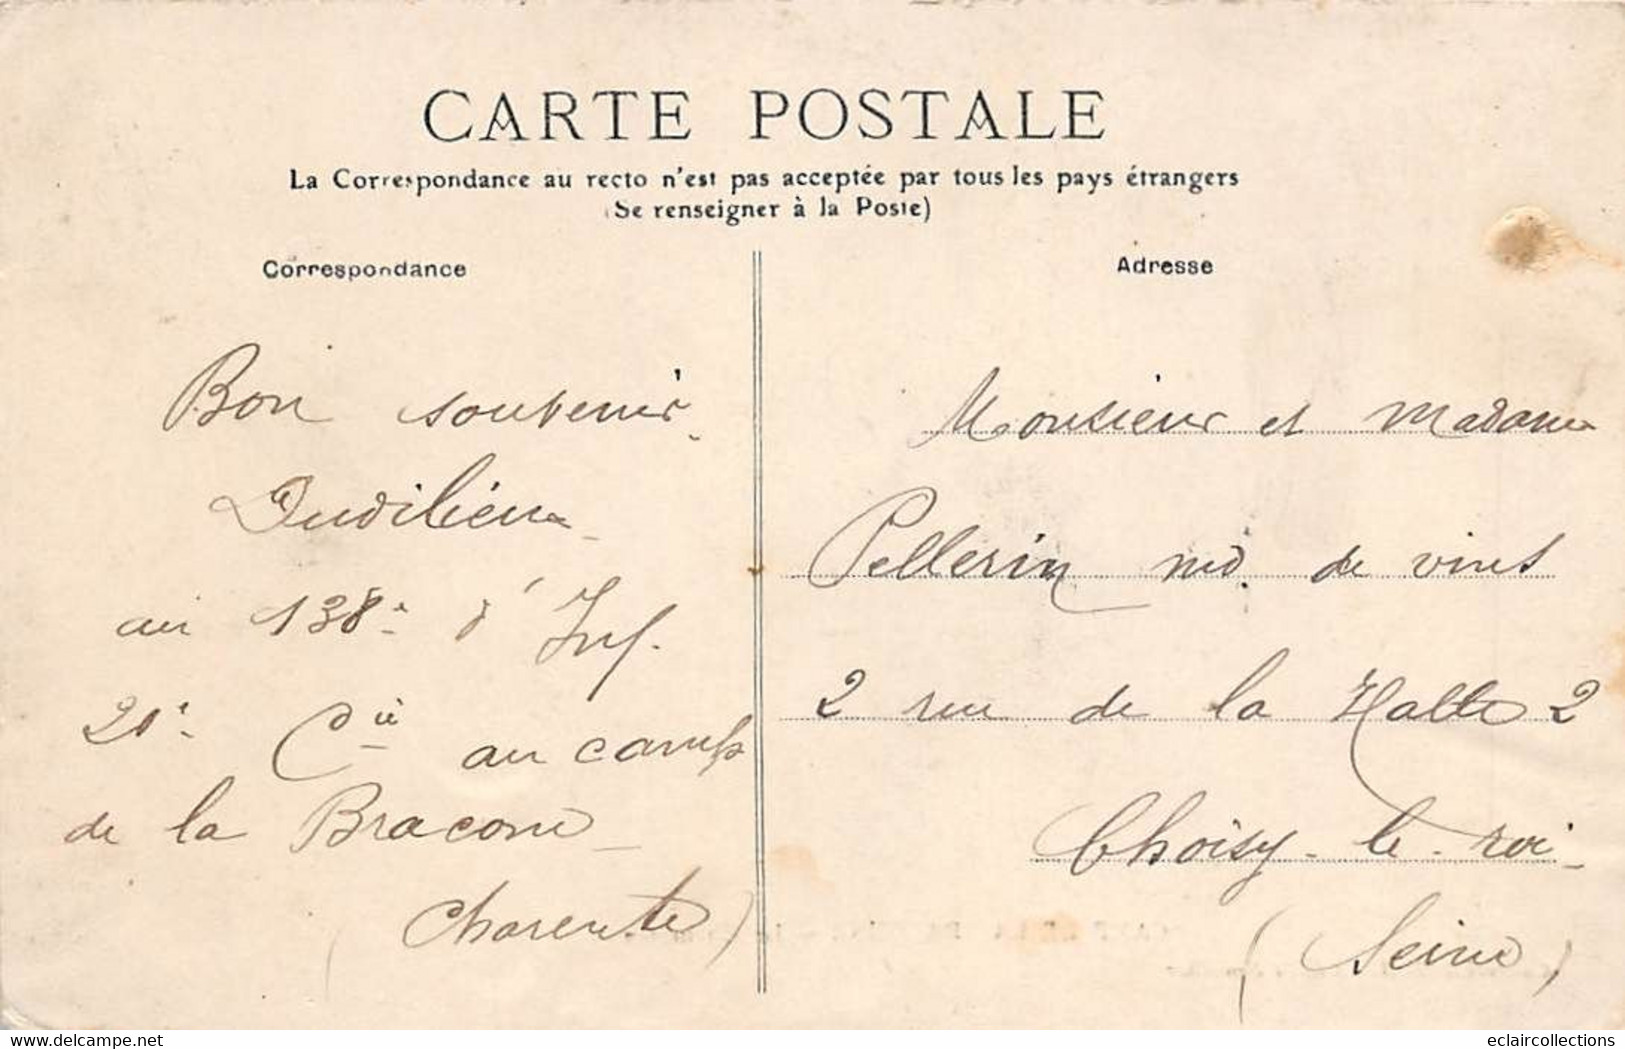 CARTE POSTALE
La Correspondance au recto n'est pas acceptée par tous les pays étrangers
(Se renseigner à la Poste)
Correspondance
Bon souvenir
au 138e d'Inf.
20e Cie au camp
de la Braconne
(Charente)
Adresse
Monsieur et Madame
Pellerin md. de vins
2 rue de la Halle 2
Choisy-le-roi-
(Seine)
delcampe.net
eclaircollections